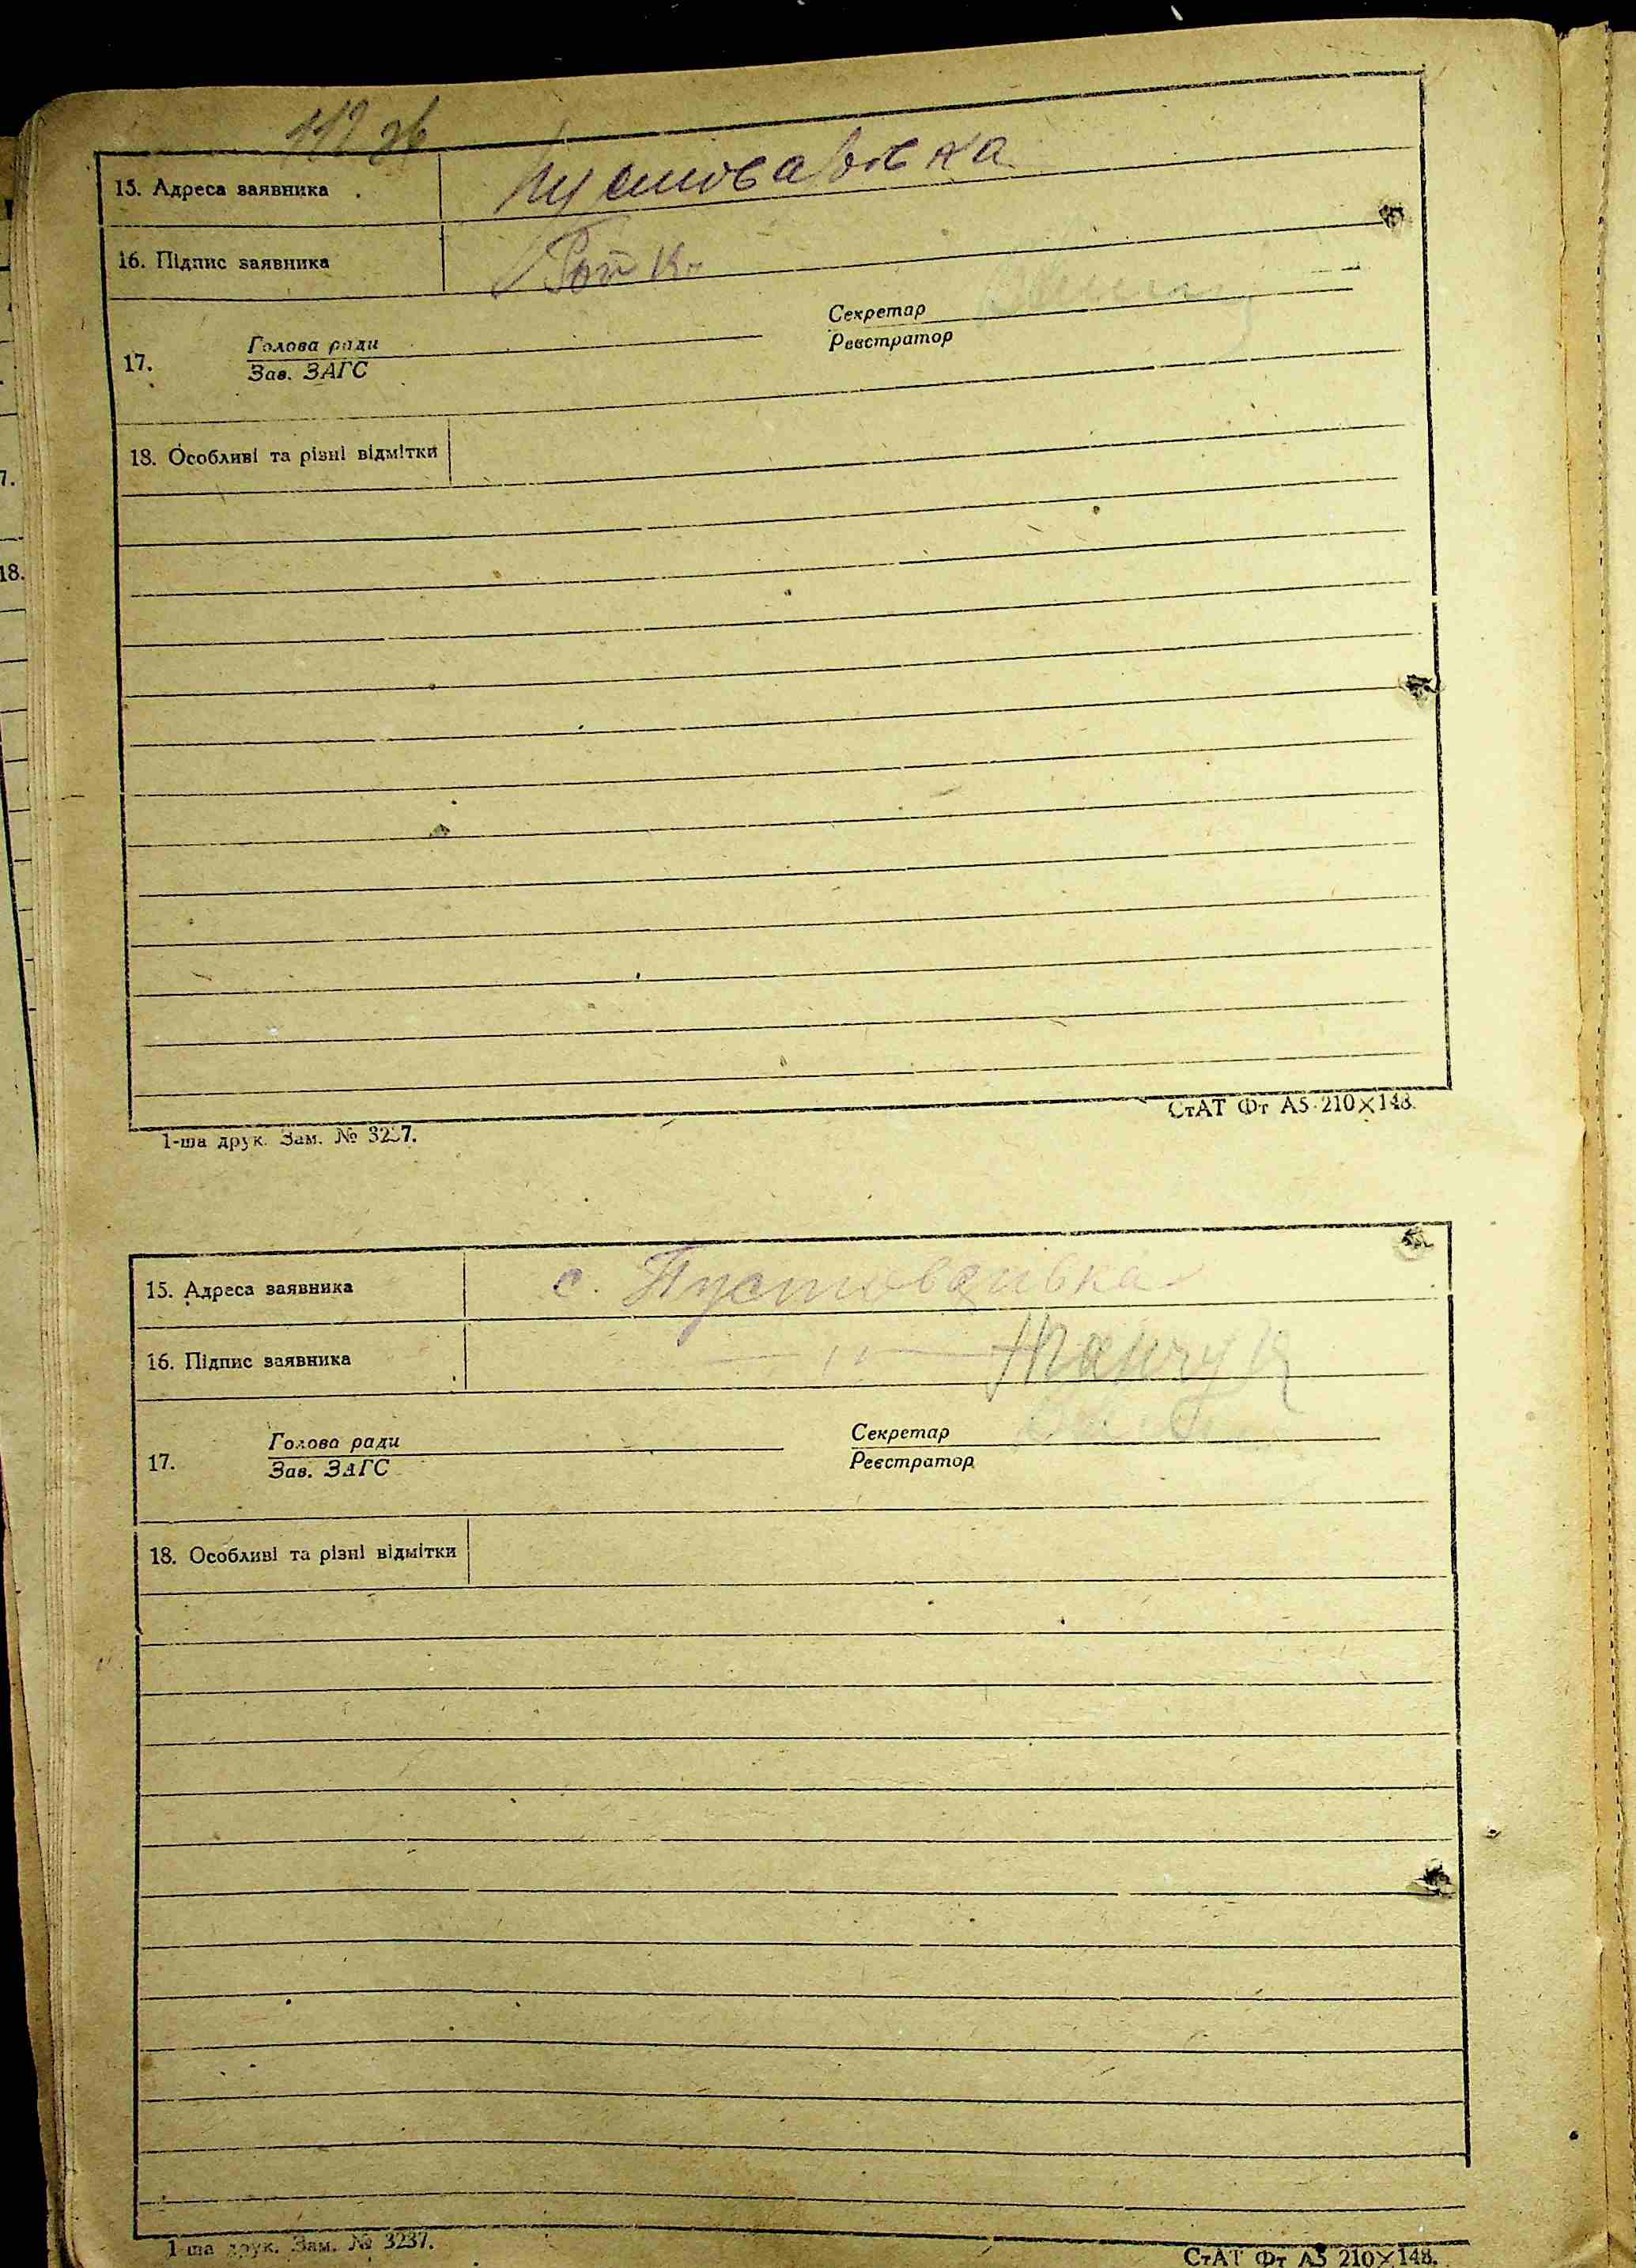 112 зв
15. Адреса заявника Пустоварівка
16. Підпис заявника
Секретар
Голова ради
Реєстратор
17.
Зав. ЗАГС
18. Особливі та різні відмітки
7.
18.
СтАТ Фт А5 210×148.
1-ша друк. Зам. № 3237.
15. Адреса заявника с. Пустоварівка
16. Підпис заявника —〃—
Секретар
Голова ради
17.
Реєстратор
Зав. ЗАГС
18. Особливі та різні відмітки
1-ша друк. Зам. № 3237.
СтАТ Фт А5 210×148.